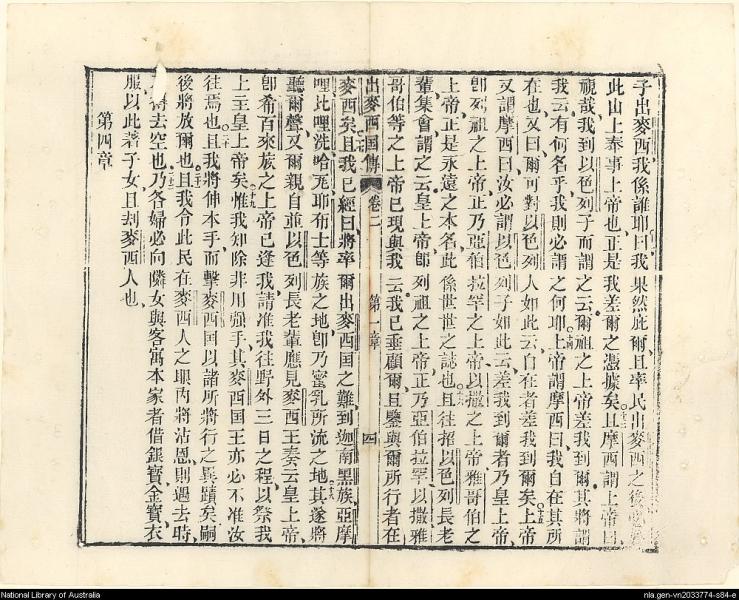 子出麥西、我係誰耶曰、我果然庇爾、且率民出麥西之後必
此山上奉事上帝也、正是我差爾之憑據矣、且摩西謂上帝曰、
視哉、我到以色列子而謂之云、爾祖之上帝差我到爾、其將謂
我云、有何名乎、我則必謂之何耶、上帝謂摩西曰、我自在其所
在也、又曰、爾可對以色列人如此云、自在者差我到爾矣、上帝
又謂摩西曰、汝必謂以色列子如此云、差我到爾者乃皇上帝、
卽列祖之上帝、正乃亞伯拉罕之上帝、以撒之上帝、雅哥伯之
上帝、正是永遠之本名、此係世世之誌也、且往招以色列長老
輩、集會謂之云、皇上帝卽列祖之上帝、正乃亞伯拉罕以撒雅
哥伯等之上帝、已現與我云、我已垂顧爾、且鑒與爾所行者在
出麥西国傳 卷二 第一章 四
麥西矣、且我已經曰、將率爾出麥西国之難、到迦南黑族、亞摩
哩比哩洗哈𠀋耶布士等族之地、卽乃蜜乳所流之地、其遂將
聽爾聲、又爾親自並以色列長老輩應見麥西王奏云、皇上帝、
卽希百來族之上帝已逢我、請准我往野外三日之程、以祭我
上主皇上帝矣、惟我知除非用强手、其麥西国王亦必不准汝
往焉也、且我將伸本手而擊麥西国以諸所將行之異蹟矣、嗣
後將放爾也、且我令此民在麥西人之眼內將沾恩、則過去時、
得去空也、乃各婦必向隣女與客寓本家者借銀寶金寶衣
服、以此著子女、且刦麥西人也、
第四章
National Library of Australia
nla.gen-vn2033774-s84-e